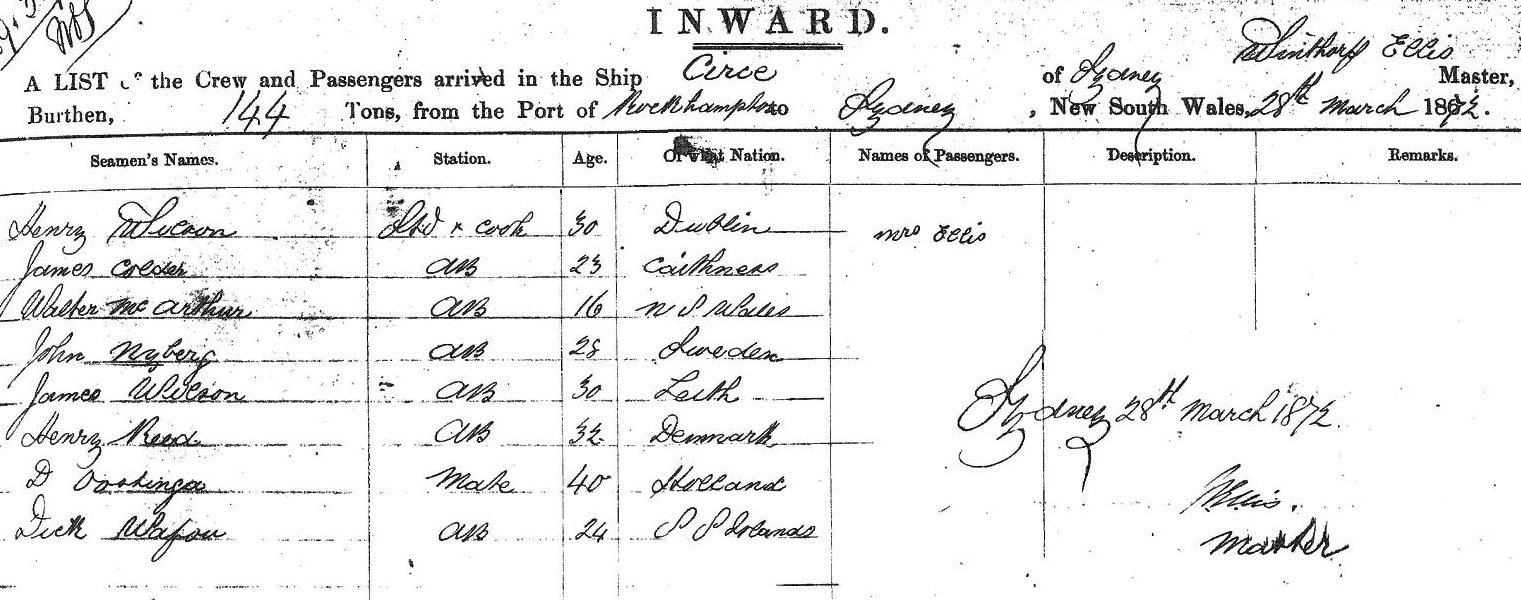 INWARD.
Ellis
A LIST of the Crew and Passengers arrived in the Ship Circe of Sydney Master,
Burthen, 144 Tons, from the Port of Rockhampton to Sydney, New South Wales, 28th March 1872.
Seamen's Names. Station. Age. Of what Nation. Names of Passengers. Description. Remarks.
Henry Wilson Std & Cook 30 Dublin Mrs Ellis
James Colder AB 23 Caithness
Walter McArthur AB 16 N S Wales
John Nyberg AB 28 Sweden
James Wilson AB 30 Leith
Sydney 28th March 1872.
Henry Reed AB 32 Denmark
D Mate 40 Holland
Ellis.
Dick AB 24 S S Islands
Master